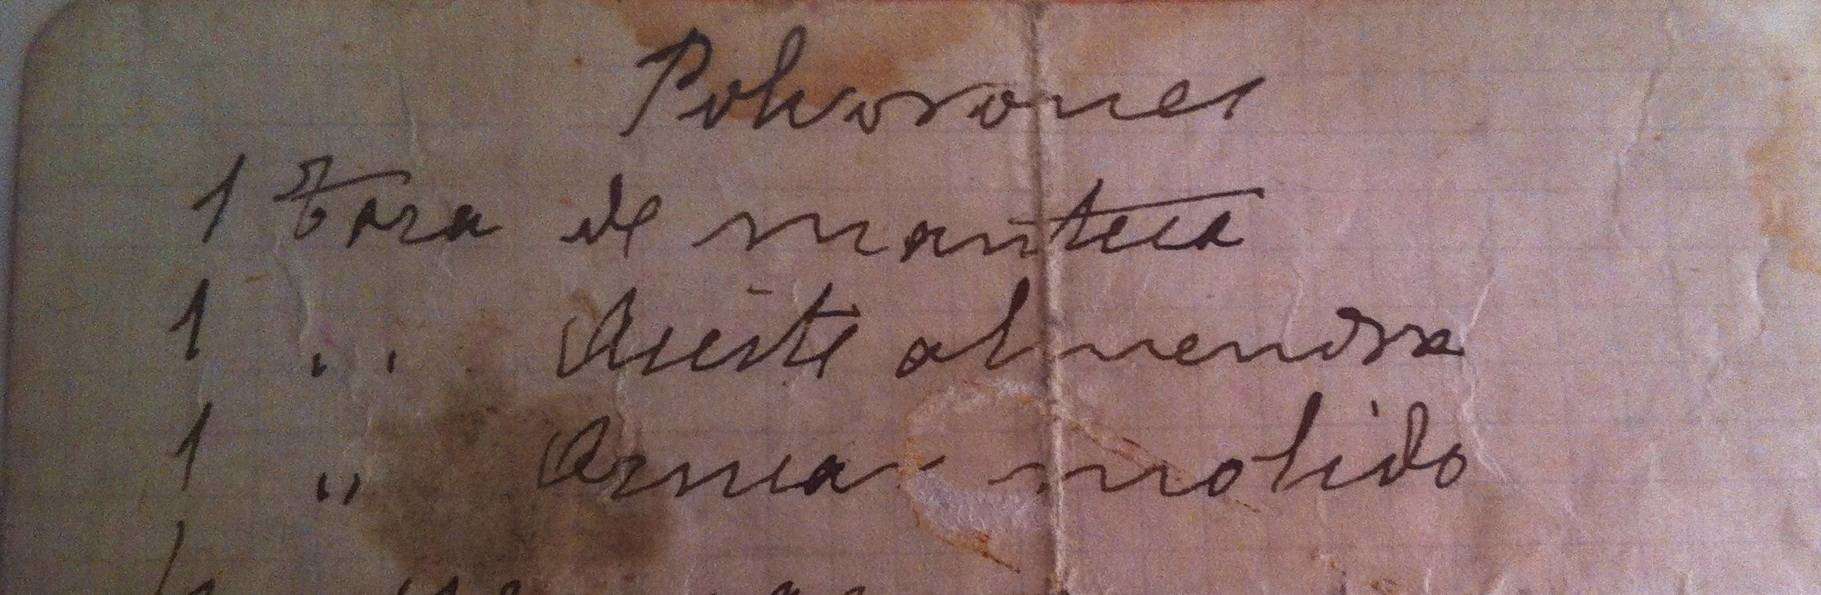 Polvorones
1 Taza de manteca
1 " Aceite almendra
1 " Azucar molido